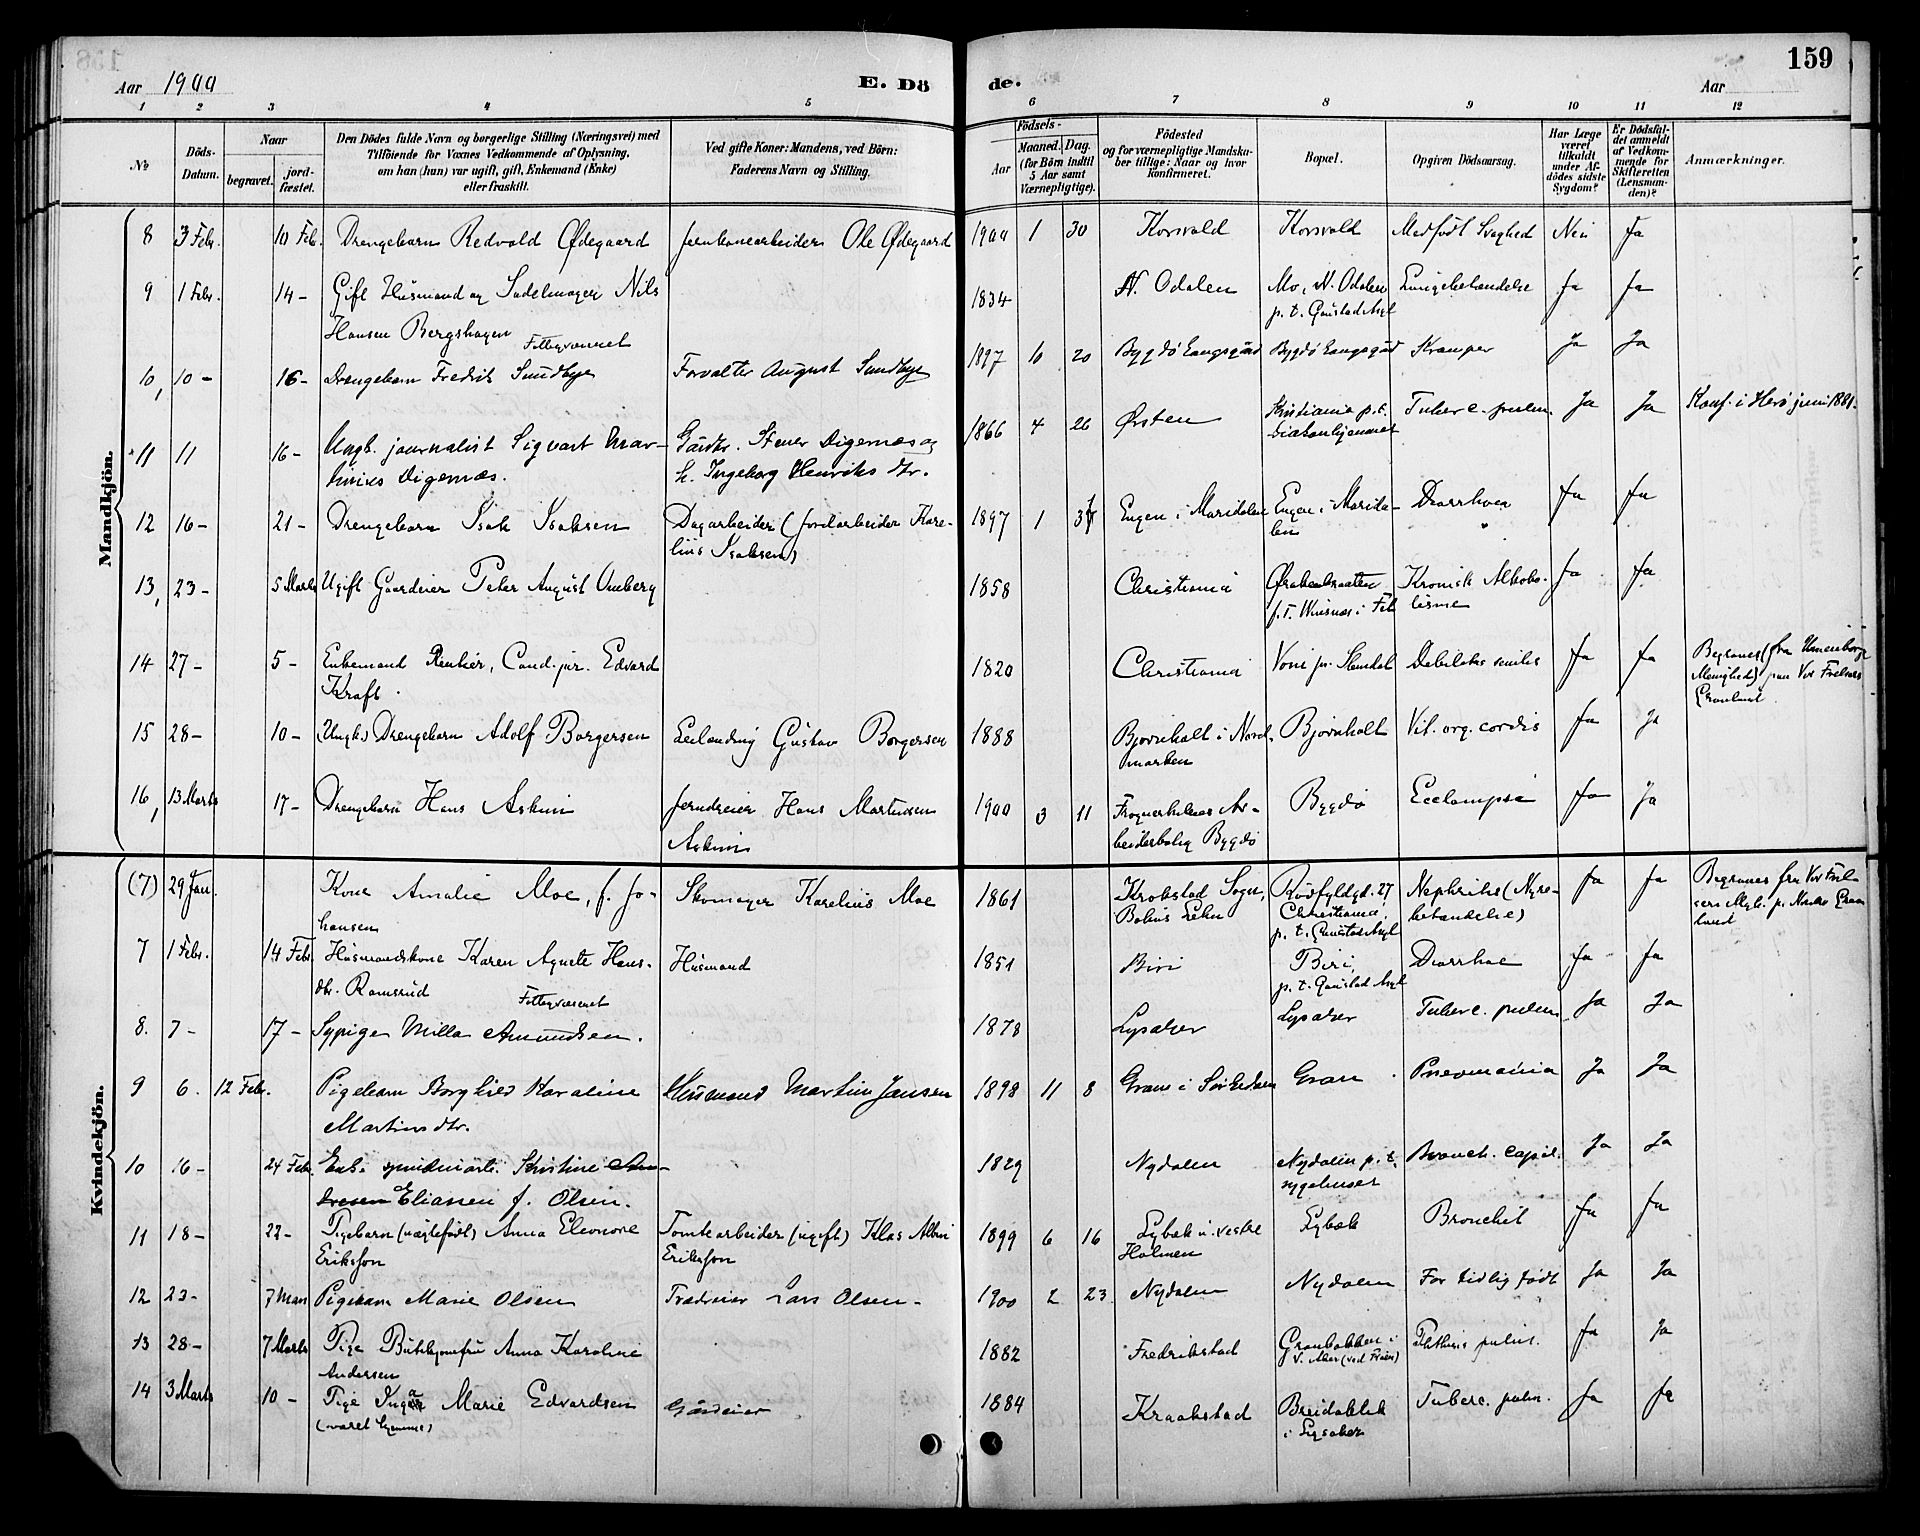 159
Aar 1900 E. Dö de. Aar
1 2 3 4 5 6 7 8 9 10 11 12
№
Döds-Datum.
Naar
begravet.
jord-fæstet.
Den Dödes fulde Navn og borgerlige Stilling (Næringsvei) med
Tilföiende for Voxnes Vedkommende af Oplysning,
om han (hun) var ugift, gift, Enkemand (Enke)
eller fraskilt.
Ved gifte Koner: Mandens, ved Börn:
Faderens Navn og Stilling.
Födsels-
Aar
Maaned. Dag.
(for Börn indtil
5 Aar samt
Værnepligtige).
Födested
og for værnepligtige Mandska-
ber tillige: Naar og hvor
konfirmeret.
Bopæl.
Opgiven Dödsaarsag.
Har Læge
været
tilkaldt
under Af-
dödes sidste
Sygdom?
Er Dödsfal-
det anmeldt
af Vedkom-
mende for
Skifteretten
(Lensman-
den)?
Anmærkninger.
Mandkjön.
8 3 Febr. 10 Feb. Drengebarn Redvald Ødegaard Jernbanearbeider Ole Ødegaard 1900 1 30 Korsvold Korsvold Medfødt Svaghed Nei Ja
9 1 Febr. 14- Gift Husmand og Sadelmager Nils 1834 N. Odalen Mo, N. Odalen Lungebetændelse Ja Ja
Hansen Bergshagen p. t. Gaustad Asyl
Fattigvæsenet
10, 10- 16- Drengebarn Fredrik Sundbye Forvalter August Sundbye 1897 10 20 Bygdö Kongsgård Bygdö Kongsgård Kramper Ja Ja
11 11 16- Ungk. journalist Sigvart Mar- Gårdbr. Stener Digernæs og 1866 4 26 Ørsten Kristiania p. t. Tuberc. pulm. Ja Ja Konf. i Herö juni 1881.
Digernæs. h. Ingeborg Henriks dtr. Diakonhjemmet
12 16- 21- Drengebarn Isak Isaksen Dagarbeider (Jordarbeider Kare- 1897 1 Engen i Maridalen Engen i Marida- Diarrhoea Ja Ja
lius Isaksen) len
13, 23- 5 Marts Ugift Gaardeier Peter August Omberg 1858 Christiania Kronisk Alkoho- Ja Ja
p. T. i lisme
14 27- 5- Enkemand Rentier, Cand. jur. Edvard 1820 Christiania Debilitas senilis Ja Ja Begraves (fra
Kraft. Menighed) paa Vor Frelsers
Gravlund
15 28- 10- (Ungk) Drengebarn Adolf Borgersen Leilending Gustav Borgersen 1888 Bjørnholt i Nord- Bjørnholt Vit. org. cordis Ja Ja
marken
16, 13 Marts 17- Drengebarn Hans Askim Jerndreier Hans Martinsen 1900 3 11 Frognerkilens Ar- Bygdø Ecclampsi Ja Ja
Askim beiderbolig Bygdø
Kvindekjön.
(7) 29 Jan. Kone Amalie Moe, f. Jo- Skomager Karelius Moe 1861 Krokstad Sogn, Rødfyldgd. 27 Nephritis (Nyre- Ja Ja Begraves fra Vor Frel-
hansen Bohus Lehn Christiania, betændelse) sers Mgh. p. Nordre Grav-
p. t. Gaustad Asyl lund
7 1 Febr. 14 Febr. Husmandskone Karen Agnete Hans- Husmand 1851 Biri Biri, Diarrhoe Ja Ja
dtr. Ramsrud p. t. Gaustad Asyl
Fattigvæsenet
8. 7- 17- Sypige Milla Amundsen. 1878 Lysaker Lysaker Tuberc. pulm. Ja Ja
9 6. 12 Febr. Pigebarn Borghild Karoline Husmand Martin Jansen 1898 11 8 Gran i Sørkedalen Gran Pneumonia Ja Ja
Martins dtr.
10 16- 24 Feb. Enke Kristine An- 1829 Nydalen Nydalen p. t. Bronch. capil. Ja Ja
dresen Eliassen f. Olsen. sygehuset
11 18- 22- Pigebarn (uægtefødt) Anna Eleonore Tomtearbeider (ugift) Klas Albin 1899 6 16 Lybæk u. vestre Lybæk Bronchit Ja Ja
Eriksson Eriksson Holmen
12 23- 7 Mars Pigebarn Marie Olsen Trædreier Lars Olsen- 1900 2 23 Nydalen Nydalen For tidlig født Ja Ja
13 28- 7 Marts Pige Butikjomfru Anna Karoline 1882 Fredrikstad Granbakken i Phthisis pulm. Ja Ja
Andersen V. Aker (ved Frøen)
14 3 Marts 10- Pige Inga Marie Edvardsen Gårdeier 1884 Kraakstad Breidablik Tuberc. pulm. Ja Ja
(været hjemme) i Lysaker